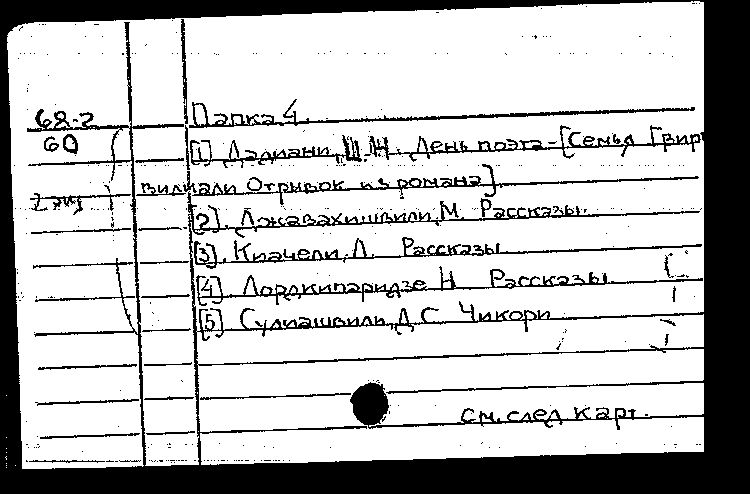 68-2
60
2 экз
Папка 4.
[1] Дадиани, Ш.Н. День поэта-[Семья Гвир
вилиали Отрывок из романа]
[2]. Джавахишвили, М. Рассказы.
[3]. Киачели, Л. Рассказы
[4] Лордкипаридзе Н Рассказы
[5] Сулиашвили, Д С Чикори
см. след карт.